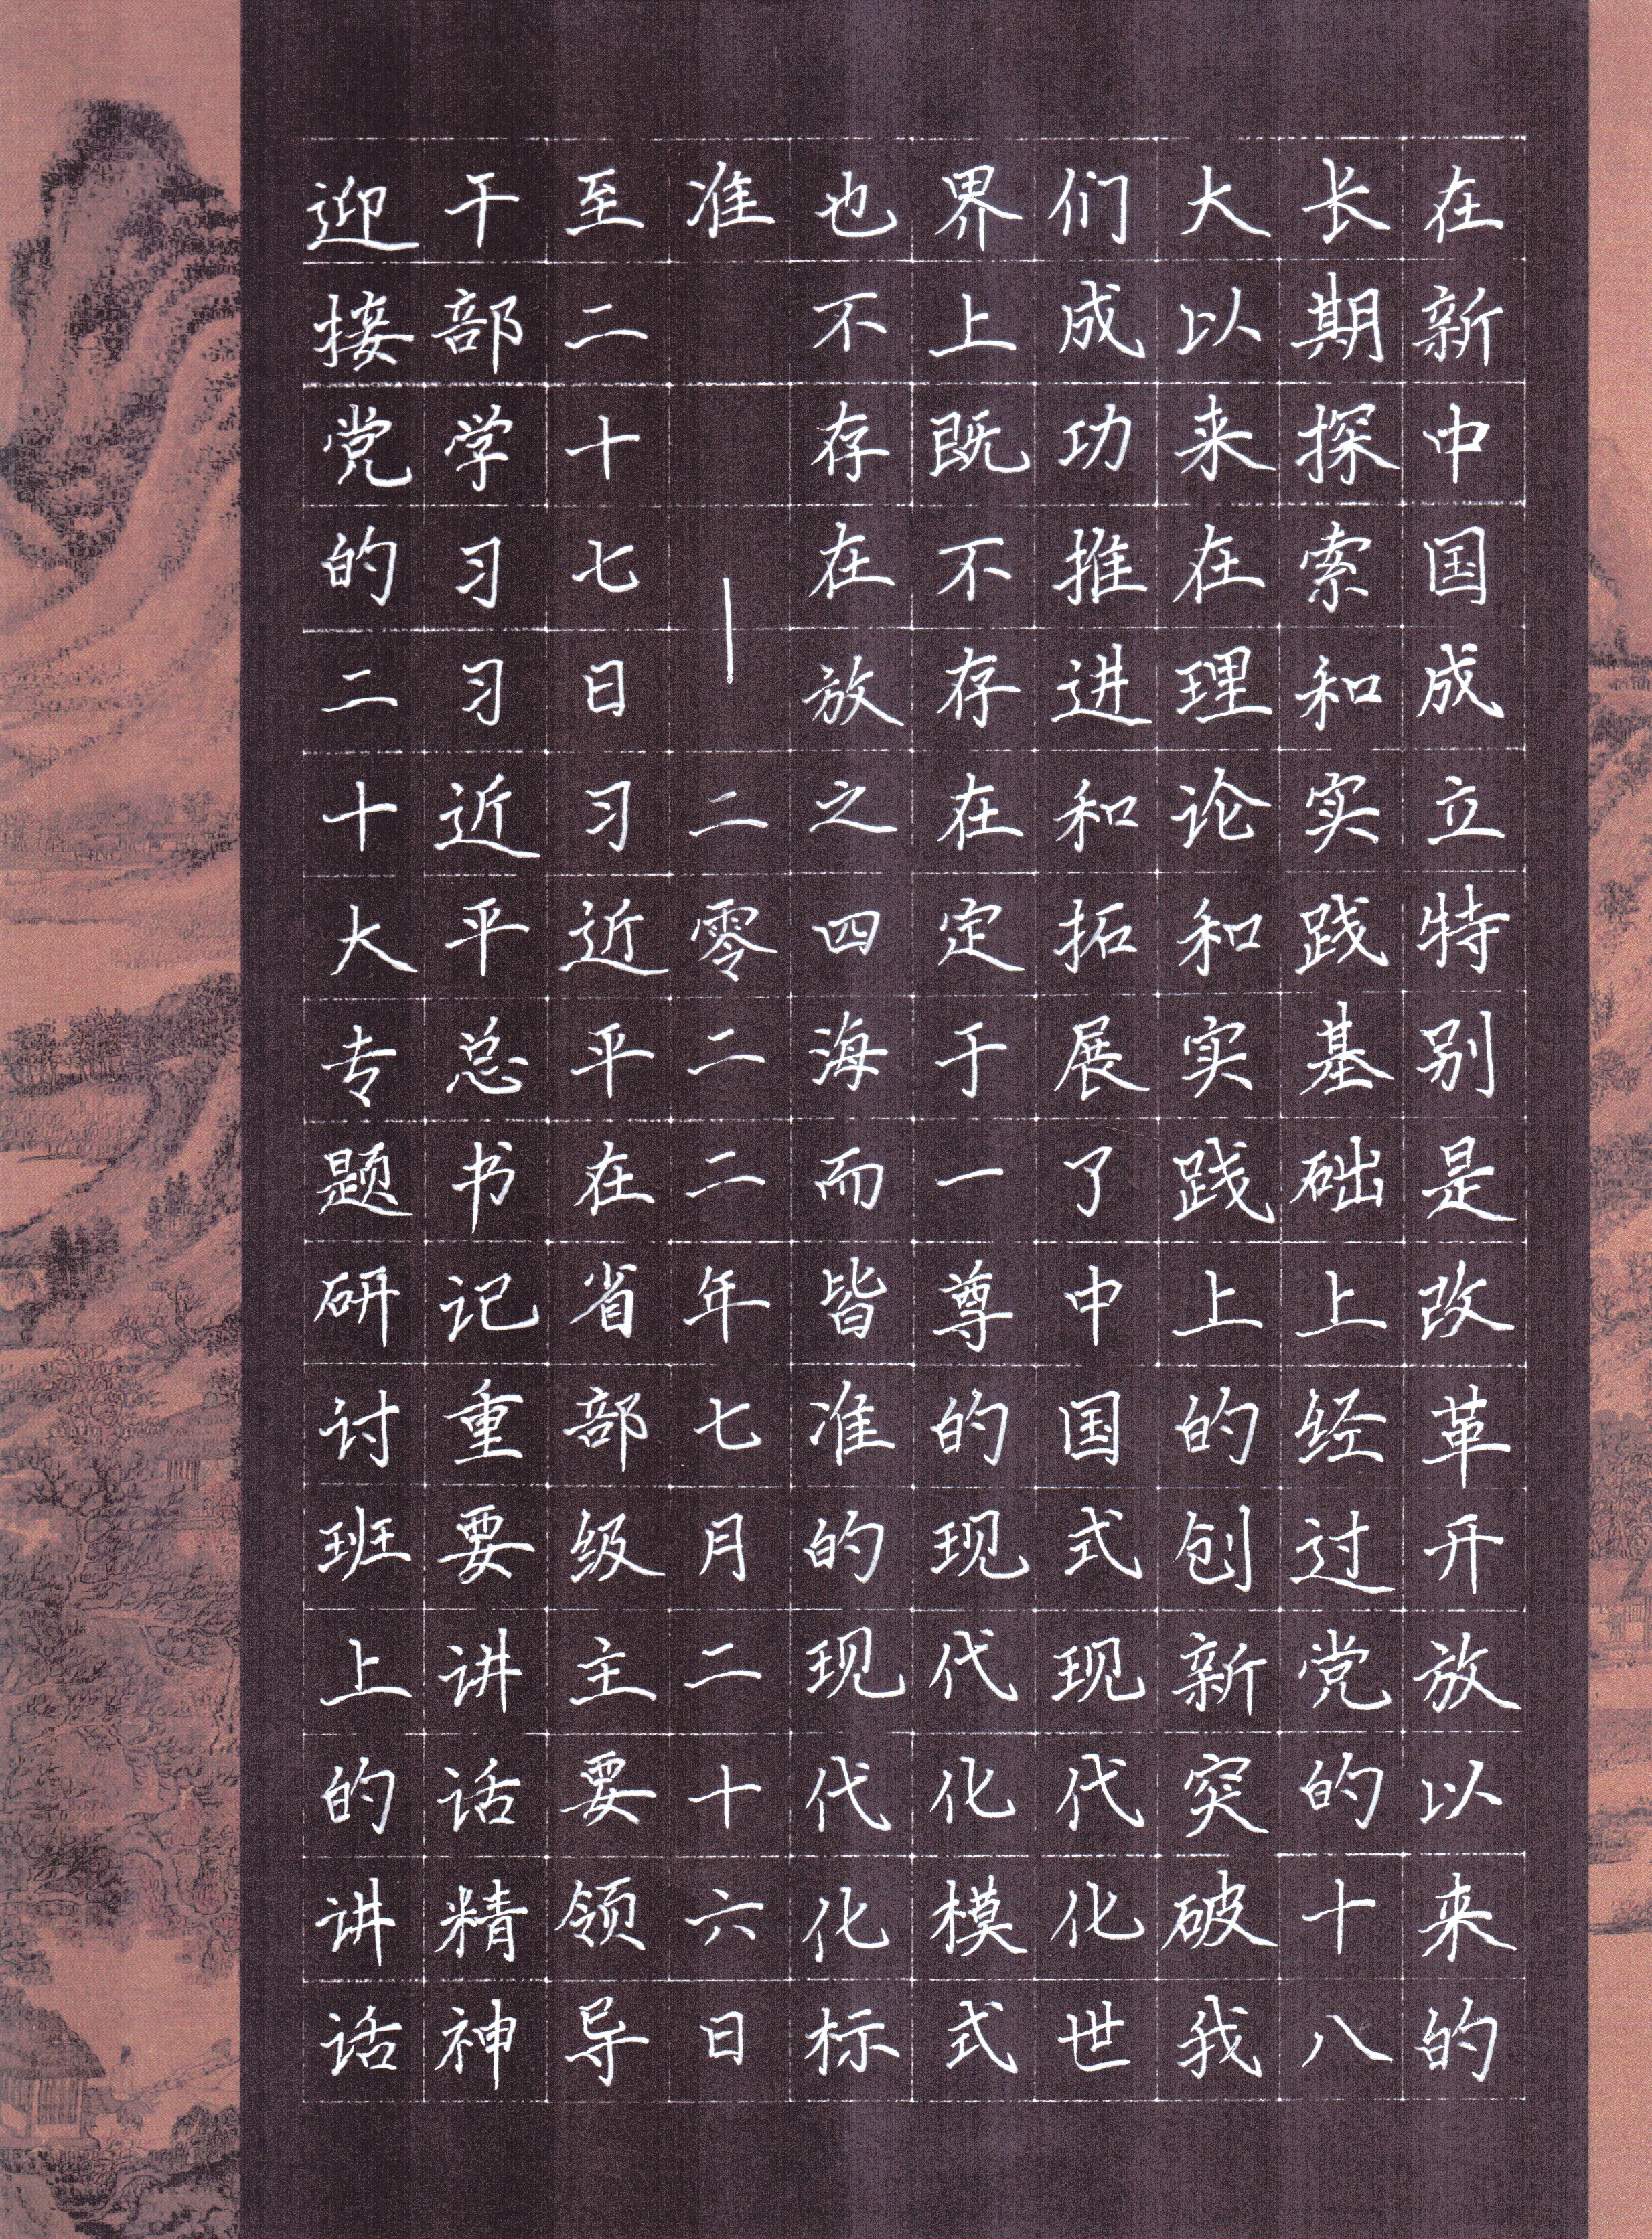 在新中国成立特别是改革开放以来的
长期探索和实践基础上经过党的十八
大以来在理论和实践上的创新突破我
们成功推进和拓展了中国式现代化世
界上既不存在定于一尊的现代化模式
也不存在放之四海而皆准的现代化标
准
—二零二二年七月二十六日
至二十七日习近平在省部级主要领导
干部学习习近平总书记重要讲话精神
迎接党的二十大专题研讨班上的讲话